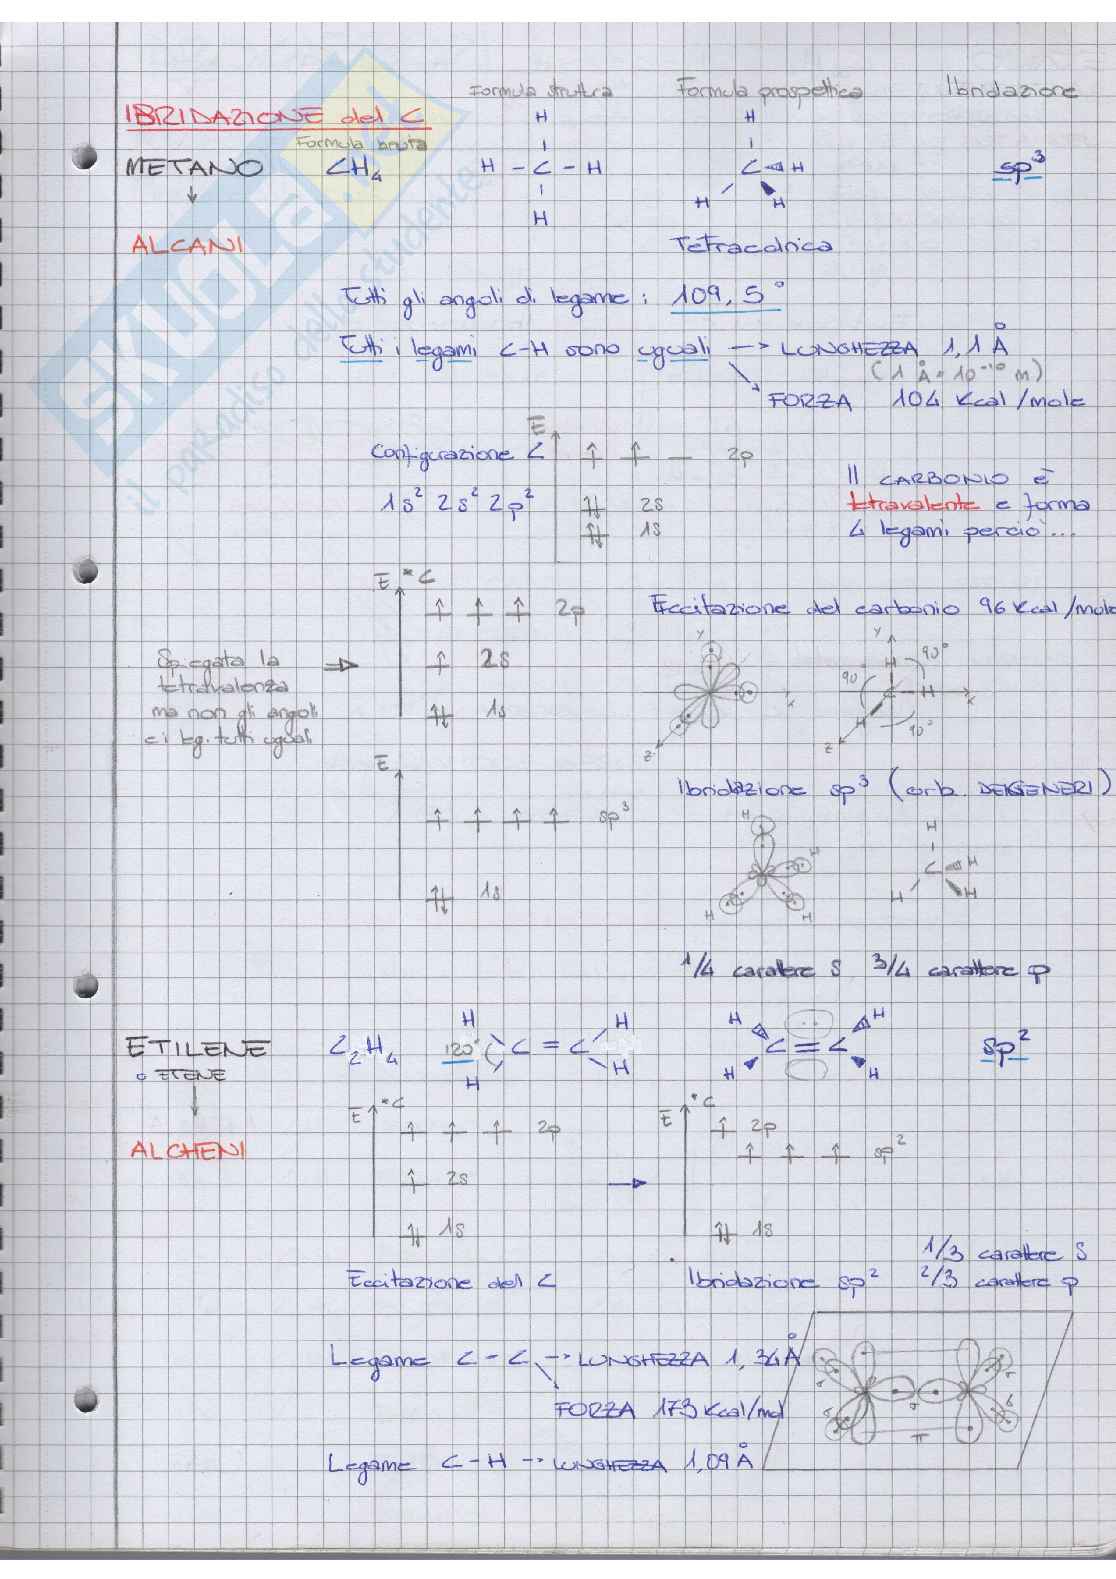 Formula struttura Formula prospettica Ibridazione
IBRIDAZIONE del C
Formula bruta
METANO CH4 H - C - H H H C H H H H sp³
ALCANI Tetraedrica
Tutti gli angoli di legame: 109,5°
Tutti i legami C-H sono uguali → LUNGHEZZA 1,1 Å
(1 Å = 10⁻¹⁰ m)
FORZA 104 Kcal/mole
Configurazione C E 2p
1s² 2s² 2p² 2s
1s
Il CARBONIO è
tetravalente e forma
4 legami perciò...
E *C
2p Eccitazione del carbonio 96 Kcal/mole
2s
1s
Spiegata la
tetravalenza
ma non gli angoli
e i leg. tutti uguali
Y X Z
Y 90° H 90° H X H 90° Z
E
Ibridazione sp³ (orb. DEGENERI)
sp³
1s
H H H H
H C H H H
1/4 carattere s 3/4 carattere p
ETILENE C2H4 120° H H C = C H H H H C = C H H sp²
o ETENE
ALCHENI
E *C 2p
2s
1s
E *C 2p
sp²
1s
1/3 carattere s
Eccitazione del C Ibridazione sp² 2/3 carattere p
Legame C - C → LUNGHEZZA 1,34 Å
FORZA 173 Kcal/mol
Legame C - H → LUNGHEZZA 1,09 Å
σ σ σ σ σ π
SKUOLA.net
il paradiso dello studente